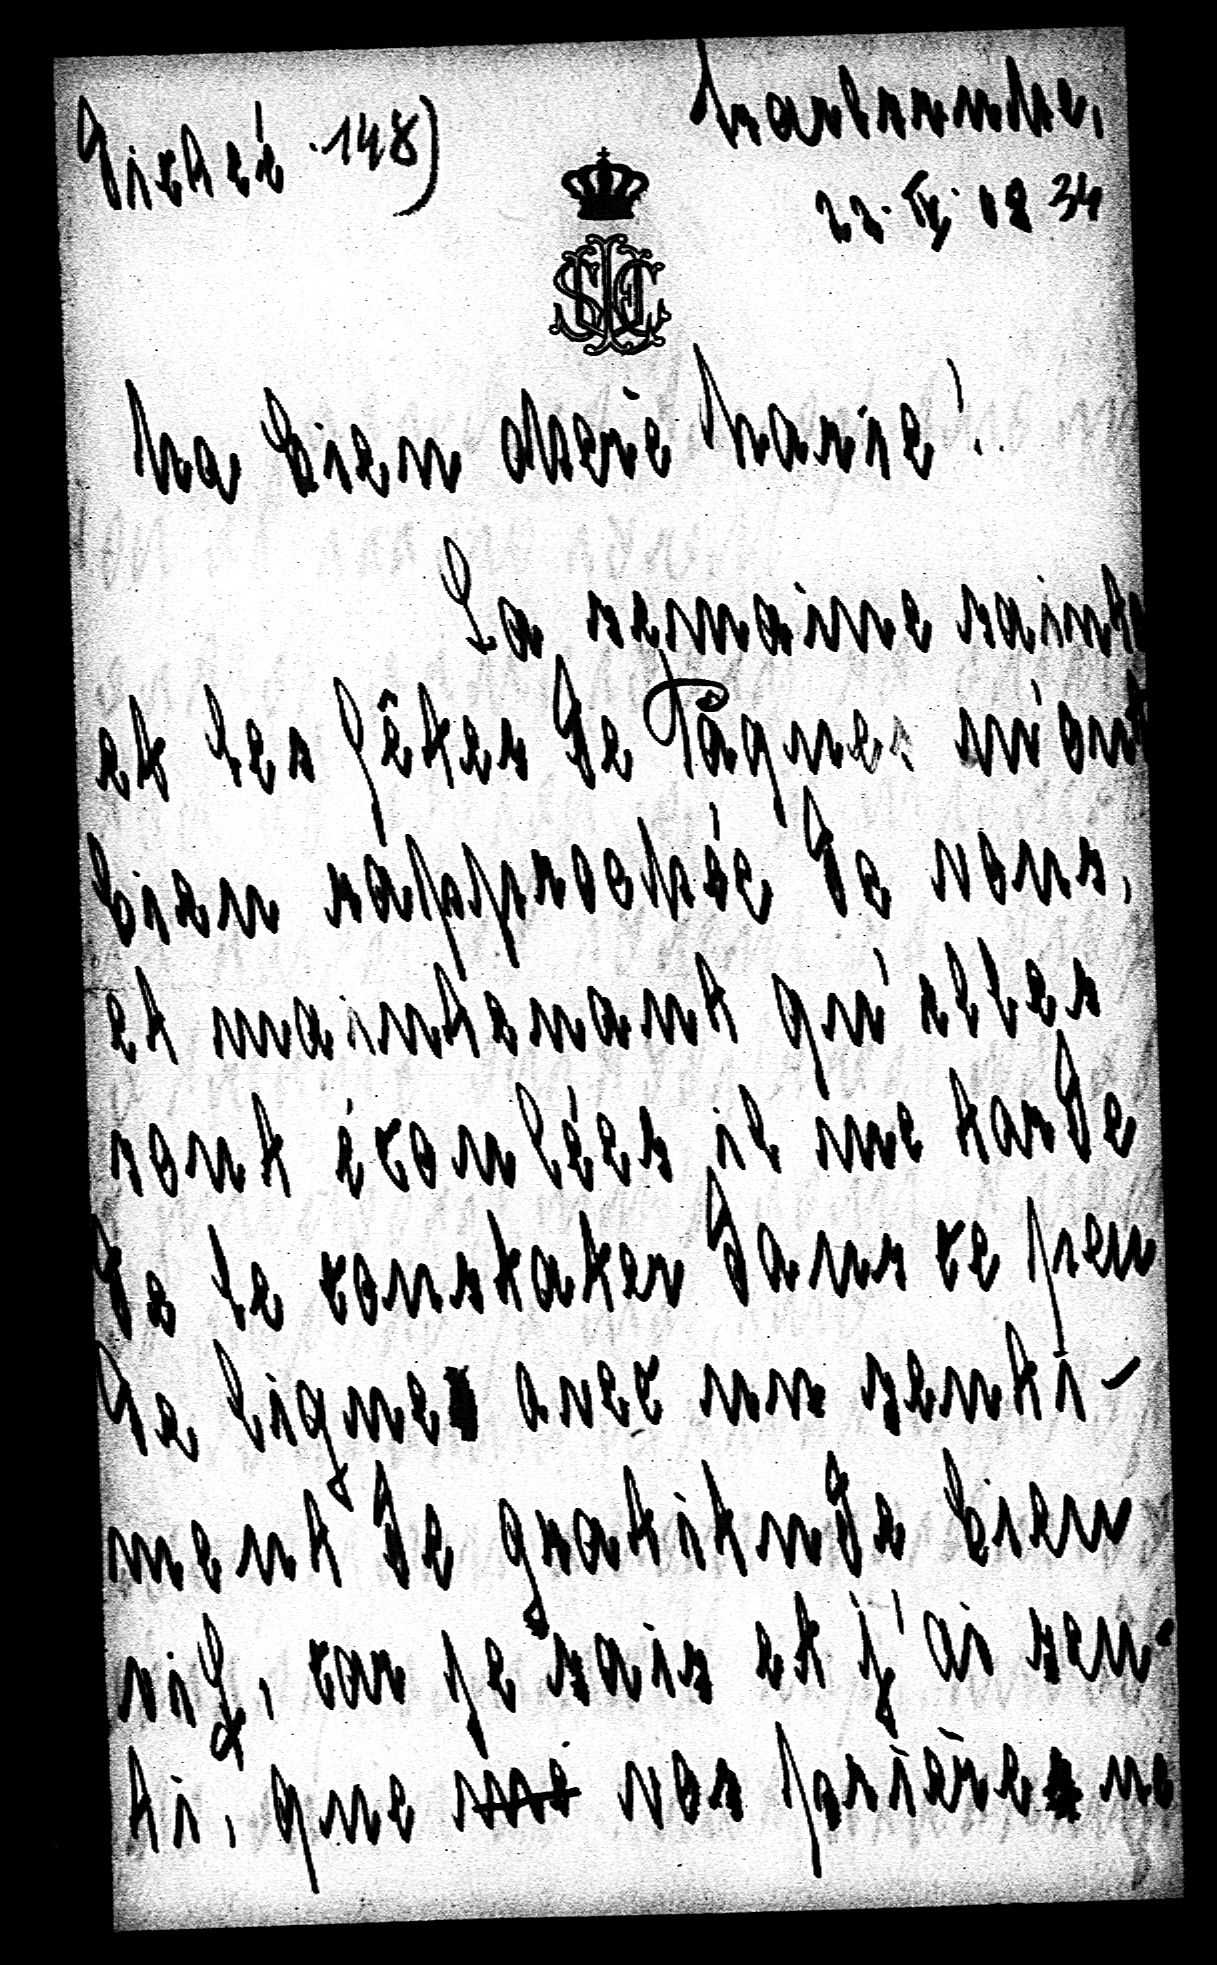 148)
22. IV. 1934
Ma bien chère Marie!
La semaine sainte
et les fêtes de Pâques m'ont
bien rapprochée de vous,
et maintenant qu'elles
sont écoulées il me tarde
de le constater dans ce peu
de lignes avec un senti-
ment de gratitude bien
vif, car je sais et j'ai sen-
ti, que me vos prières ne